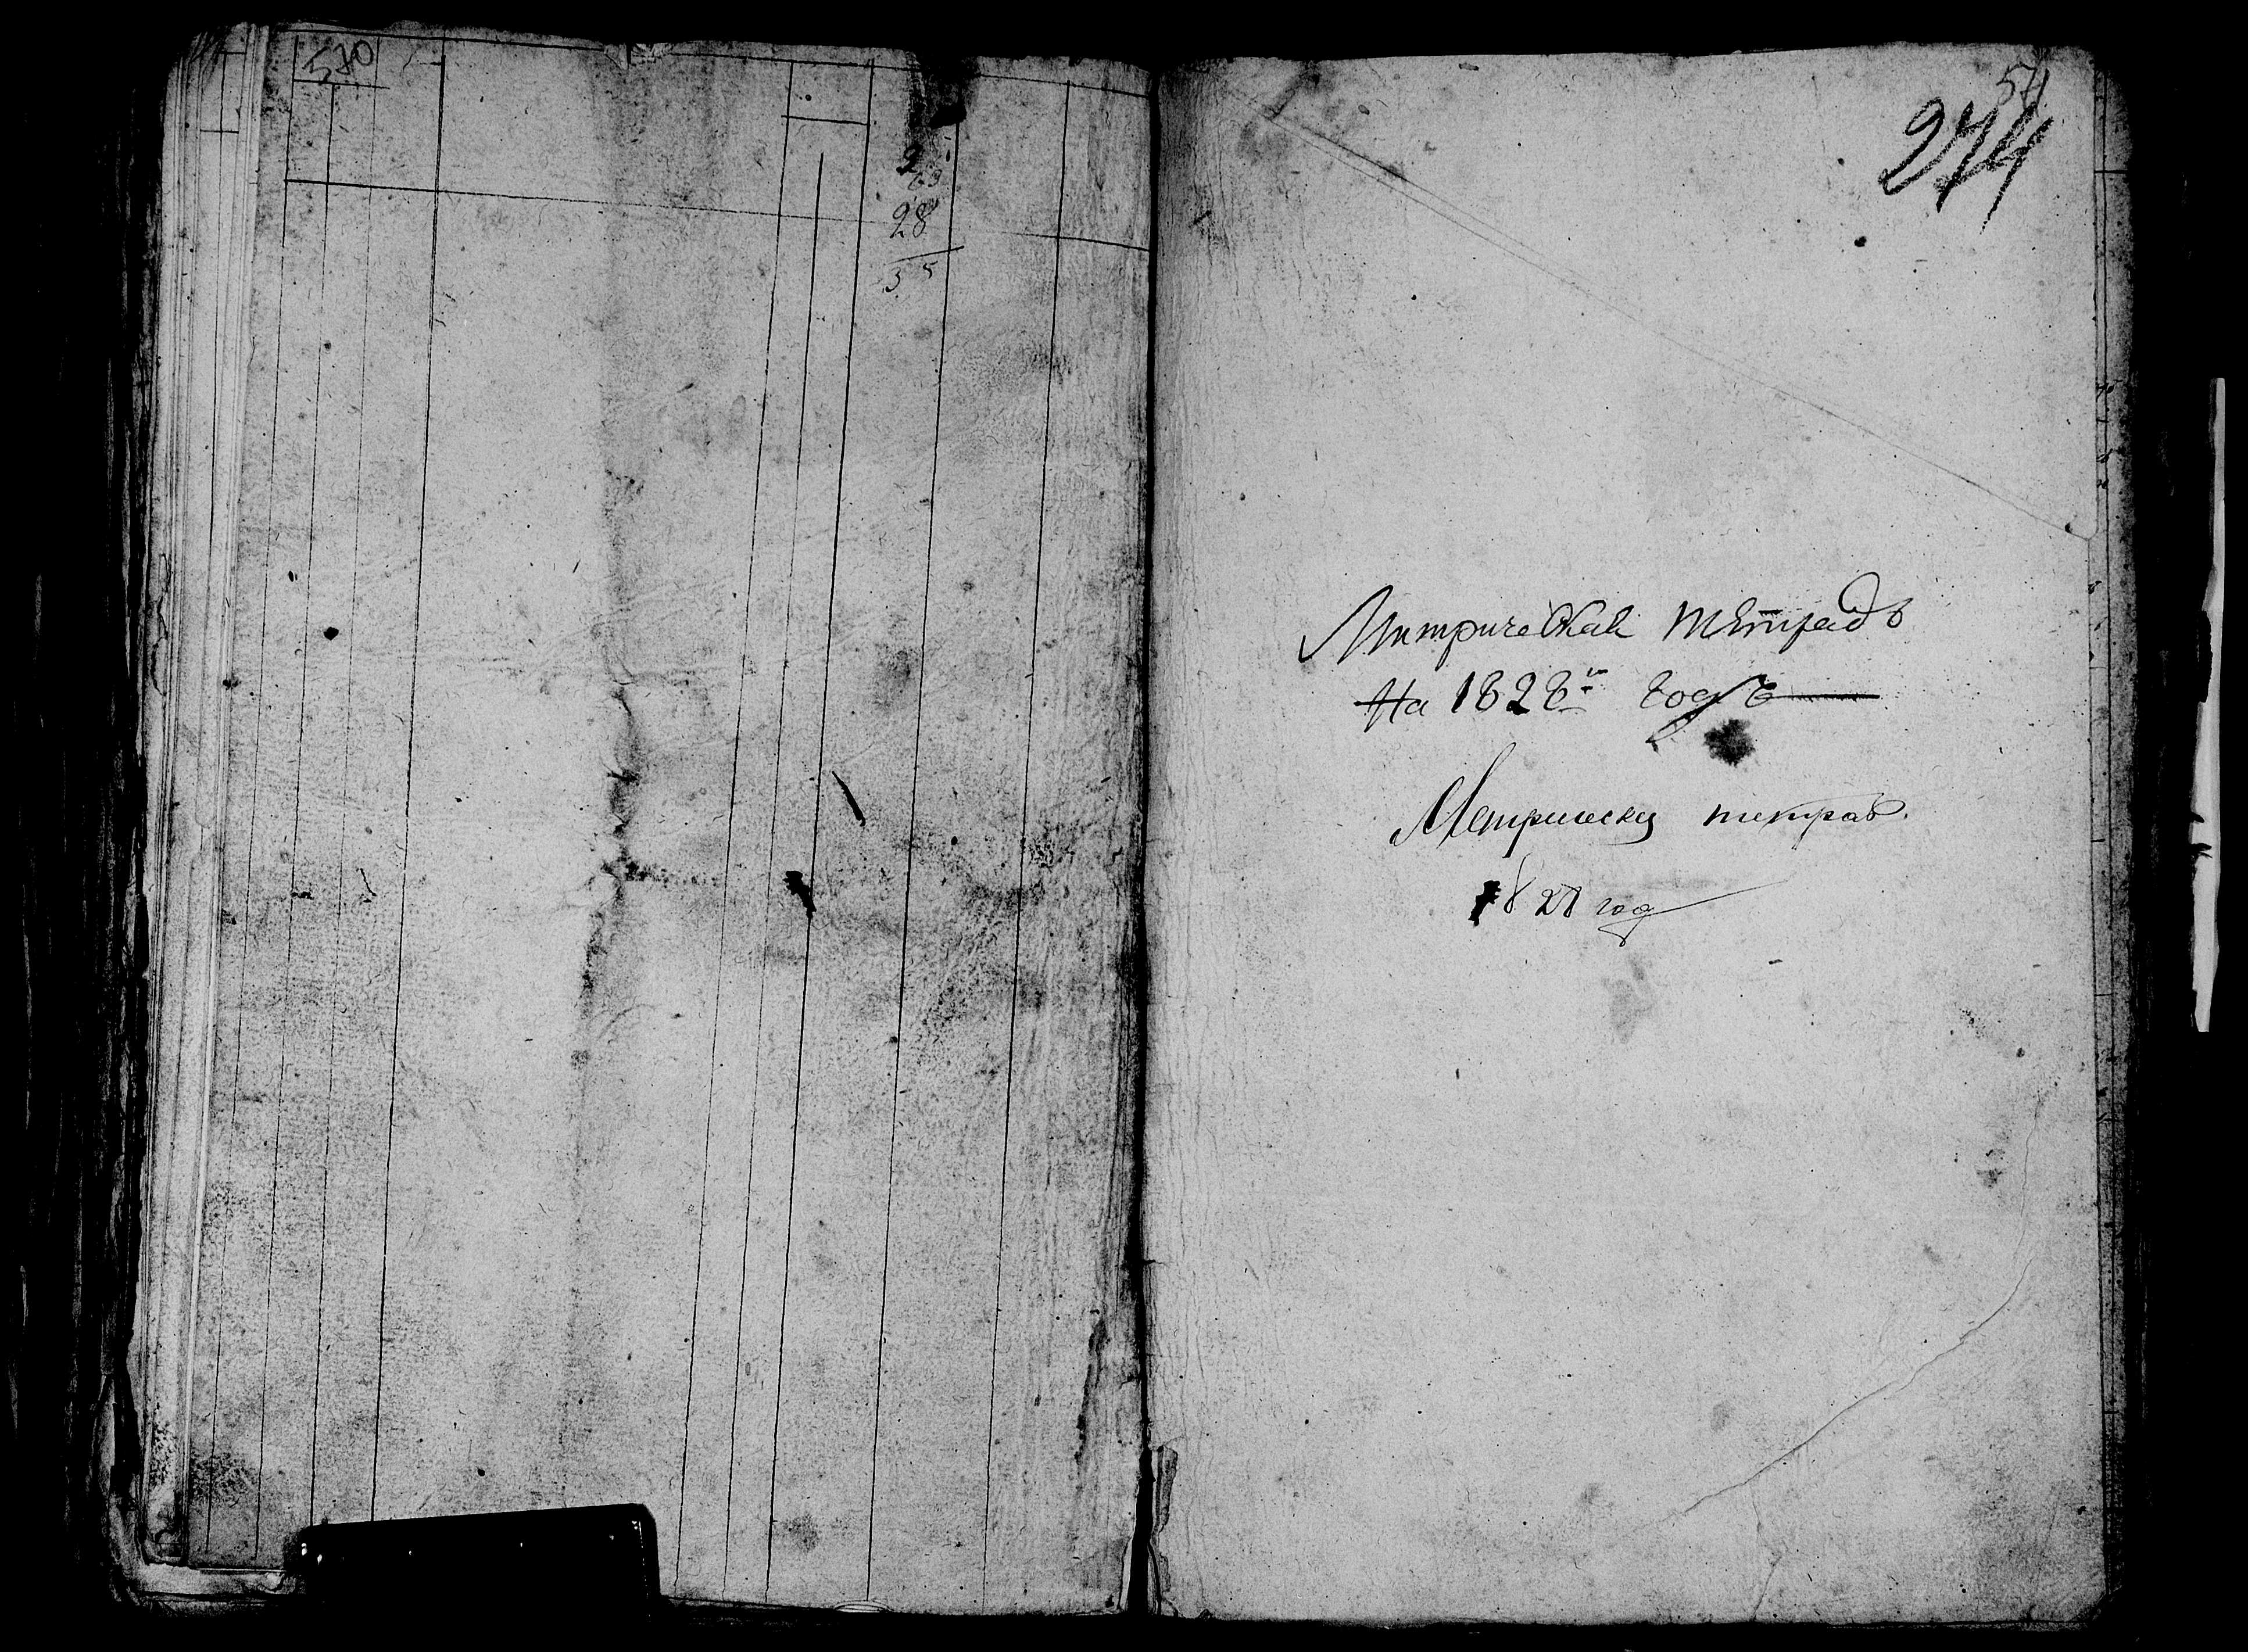 570
28
35
571
274
Митрическая тетрадь
На 1828й годъ
Метрическ тетрад.
1828 год